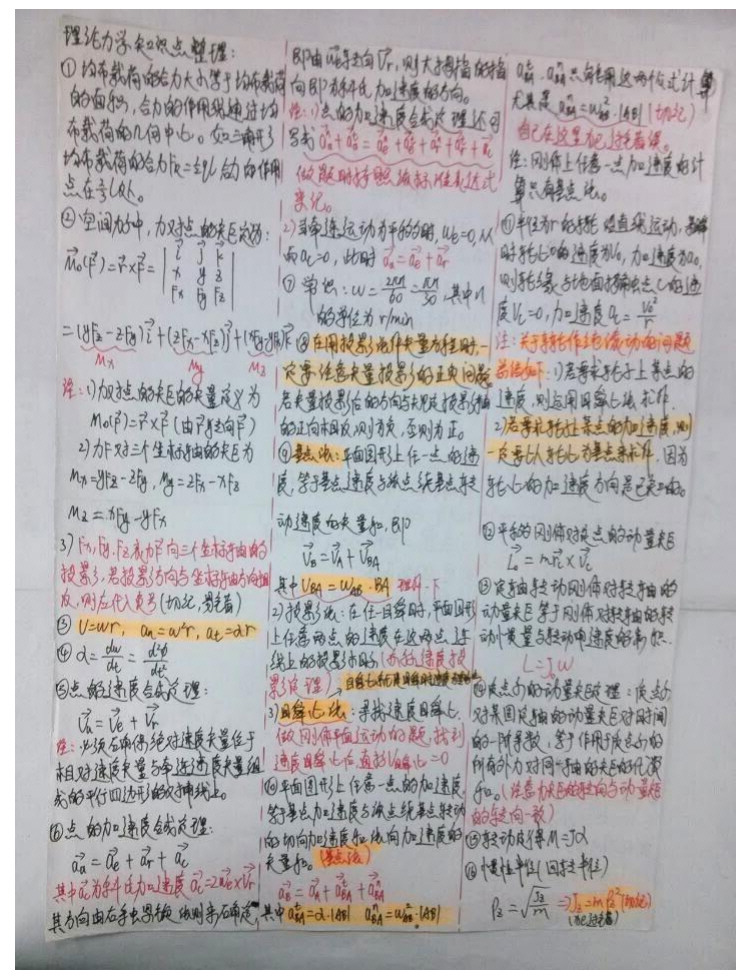 理论力学知识点整理:
① 均布载荷的合力大小等于均布载荷
的面积,合力的作用线通过均
布载荷的几何中心。如三角形
均布载荷的合力FR=½qL 合力的作用
点在⅔L处。
② 空间力中,力对点的矩定义为:
M₀(F)=r×F= | i j k |
| x y z |
| Fx Fy Fz |
=(yFz-zFy)i+(zFx-xFz)j+(xFy-yFx)k
Mx My Mz
注:1)力对点的矩的矢量定义为
M₀(F)=r×F (由r转向F)
2)力F对三个坐标轴的矩为
Mx=yFz-zFy, My=zFx-xFz
Mz=xFy-yFx
3)Fx,Fy,Fz表力F向三个坐标轴的
投影,若投影方向与坐标轴方向相
反,则应代入负号(切记,易错)
③ v=wr, an=w²r, at=αr
④ α=dw/dt=d²θ/dt²
⑤点的速度合成定理:
va=ve+vr
注:必须先确保绝对速度矢量位于
相对速度矢量与牵连速度矢量组
成的平行四边形的对角线上。
⑥点的加速度合成定理:
aa=ae+ar+ac
其中ac为科氏加速度 ac=2we×vr
其方向由右手螺旋法则来确定,
即由we转向vr,则大拇指的指
向即为科氏加速度的方向。
注:1)点的加速度合成定理还可
写成
做题时按照该标准表达式
来记。
2)当牵连运动为平动时,we=0,从
而ac=0,此时aa=ae+ar
⑦ 常识:w=2πn/60=πn/30,其中n
的单位为r/min
⑧在用投影法作矢量方程时,一
定要注意矢量投影的正负问题
若矢量投影后的方向与规定投影轴
的正向相反,则为负,否则为正。
⑨基点法:平面图形上任一点的速
度,等于基点速度与该点绕基点转
动速度的矢量和,即
vB=vA+vBA
其中vBA=wAB·BA
2)投影法:在任一瞬时,平面图形
上任意两点的速度在这两点连
线上的投影相等(亦称速度投
影定理)
3)瞬心法:寻找速度瞬心
做刚体平面运动的题,找到
速度瞬心后直接v瞬心=0
⑩平面图形上任意一点的加速度
等于基点加速度与该点绕基点转动
的切向加速度和法向加速度的
矢量和。(基点法)
aB=aA+aᵗBA+aⁿBA
其中 aᵗBA=α·|AB| aⁿBA=w²AB·|AB|
aᵗBA、aⁿBA只能用这两个公式计算
尤其是aⁿBA=w²AB·|AB|(切记)
自己在这里犯过错误。
注:刚体上任意一点加速度的计
算只有基点法。
⑪半径为r的轮沿直线运动,某瞬
时轮心O的速度为v₀,加速度为a₀,
则轮缘与地面接触点C的速
度vc=0,加速度ac=v₀²/r
注:关于轮作纯滚动的问题
总结如下:1)若要求轮子上某点的
速度,则运用瞬心法求解.
2)若要求轮上某点的加速度,则
一定要以轮心为基点来求解,因为
轮心的加速度方向是已知的。
⑫平动刚体对定点的动量矩
L₀=mrc×vc
⑬定轴转动刚体对转轴的
动量矩等于刚体对转轴的转
动惯量与转动角速度的乘积.
L=Jw
⑭质点系的动量矩定理:质点系
对某固定轴的动量矩对时间
的一阶导数,等于作用于质点系的
所有外力对同一轴的矩的代数
和。(注意力矩的转向与动量矩
的转向一致)
⑮转动定律M=Jα
⑯惯性半径(回转半径)
ρz=√(Jz/m) ⇒Jz=mρz²(切记)